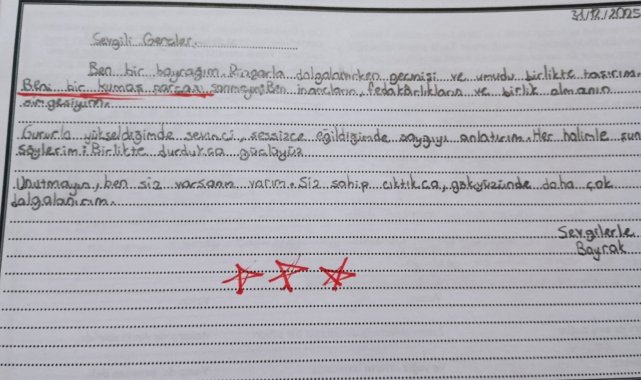 31/12/2025
Sevgili Gençler,
Ben bir bayrağım. Rüzgarla dalgalanırken geçmişi ve umudu birlikte taşırım.
Beni bir kumaş parçası sanmayın. Ben inancların, fedakârlıkların ve birlik olmanın
simgesiyim.
Gururla yükseldiğimde sevinci, sessizce eğildiğimde saygıyı anlatırım. Her halimle şunu
söylerim: Birlikte durdukça güçlüyüz
Unutmayın, ben siz varsanız varım. Siz sahip çıktıkça, gökyüzünde daha çok
dalgalanırım.
Sevgilerle
Bayrak